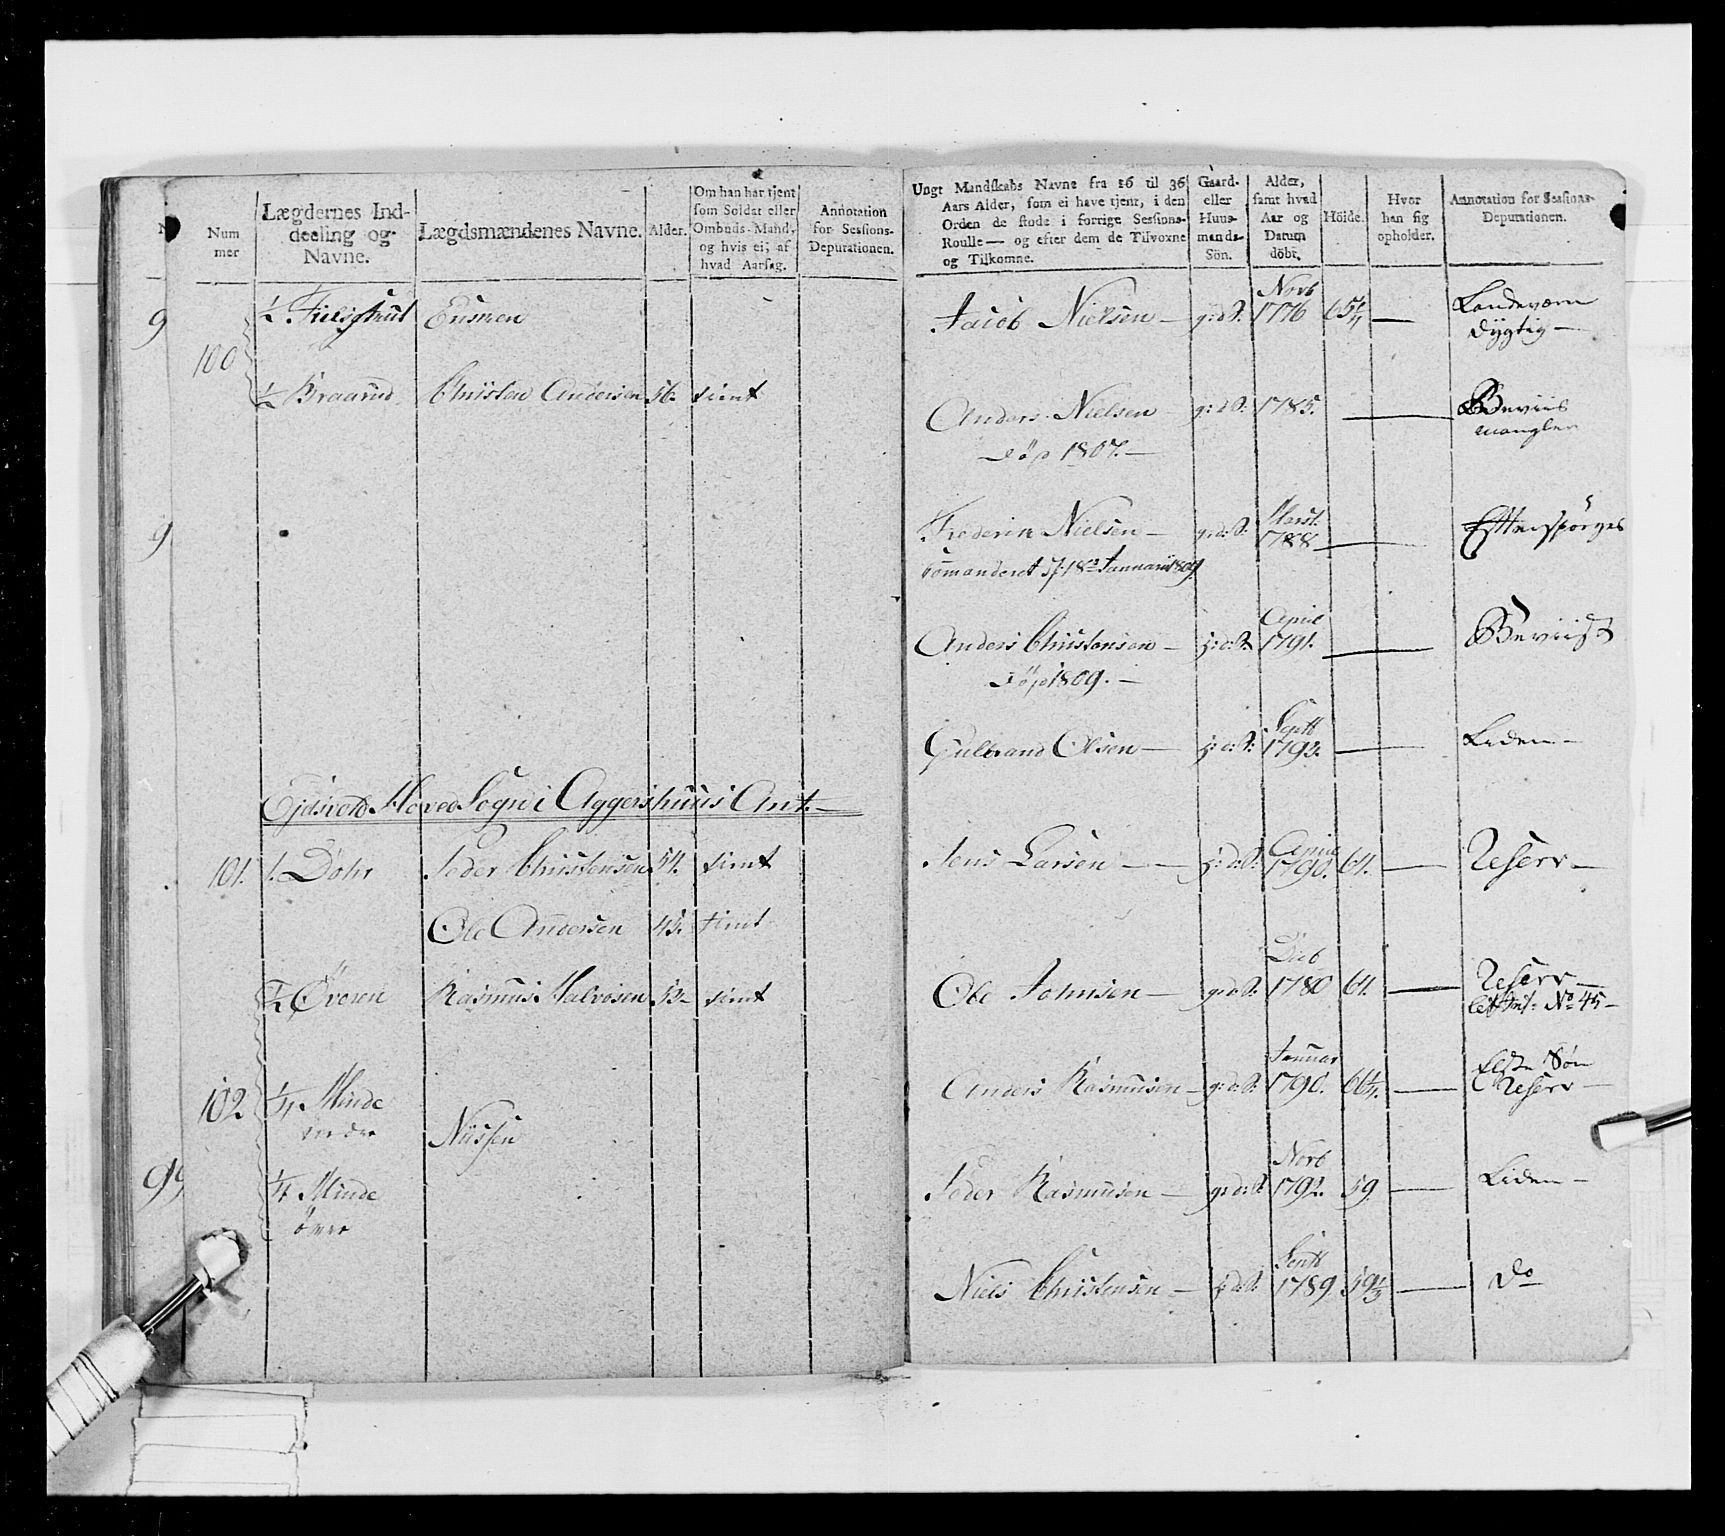 Num
mer
Lægdernes Ind-
deeling og
Navne.
Lægdsmændenes Navne.
Alder.
Om han har tjent
som Soldat eller
Ombuds-Mand,
og hvis ei, af
hvad Aarsag.
Annotation
for Sessions-
Deputationen.
100
½
Ensmen
½ Braarud Christen Andersen 56. tient
Ejdsvold Hoved Sogn i Aggershuus Amt.
101. 1. Dohr Peder Christensen 54. tient
Ole Andersen 43. tient
½ Øveren Rasmus Halvorsen 53 tient
102. ¼ Minde
nedre
Nilssen
¼ Minde
övre
Ungt Mandskabs Navne fra 16 til 36
Aars Alder, som ei have tjent, i den
Orden de stode i forrige Sessions-
Roulle — og efter dem de Tilvoxne
og Tilkomne.
Gaard-
eller
Huus-
mands-
Sön.
Alder,
samt hvad
Aar og
Datum
döbt.
Höide.
Hvor
han sig
opholder.
Annotation for Sessions-
Deputationen.
Novb
Jacob Nielsen — g: d S. 1776 — Landeværn
dygtig —
Anders Nielsen — g: d S. 1785. — Beviis
mangler
Döp 1807. —
Marst.
Frederik Nielsen — g: d: S. 1788. — Efterspörges
comanderet d: 18de Januarii 1809
April
Anders Christensen — h: d: S. 1791. — Beviist
Döp 1809. —
Septb
Gulbrand Olsen — h: d: S: 1793. — Liden —
April
Jens Larsen — h: d: S. 1790. 64. — Reserv —
Decb
Ole Johnsen — g: d: S. 1780 64. — Reserv —
No 45 —
Januar
Anders Rasmusen — g: d: S. 1790. — Elste Sön
Reserv —
Novb
Peder Rasmusen — g: d: S. 1792. 59. — Liden —
Septb
Niels Christensen — h: d: S. 1789 — do